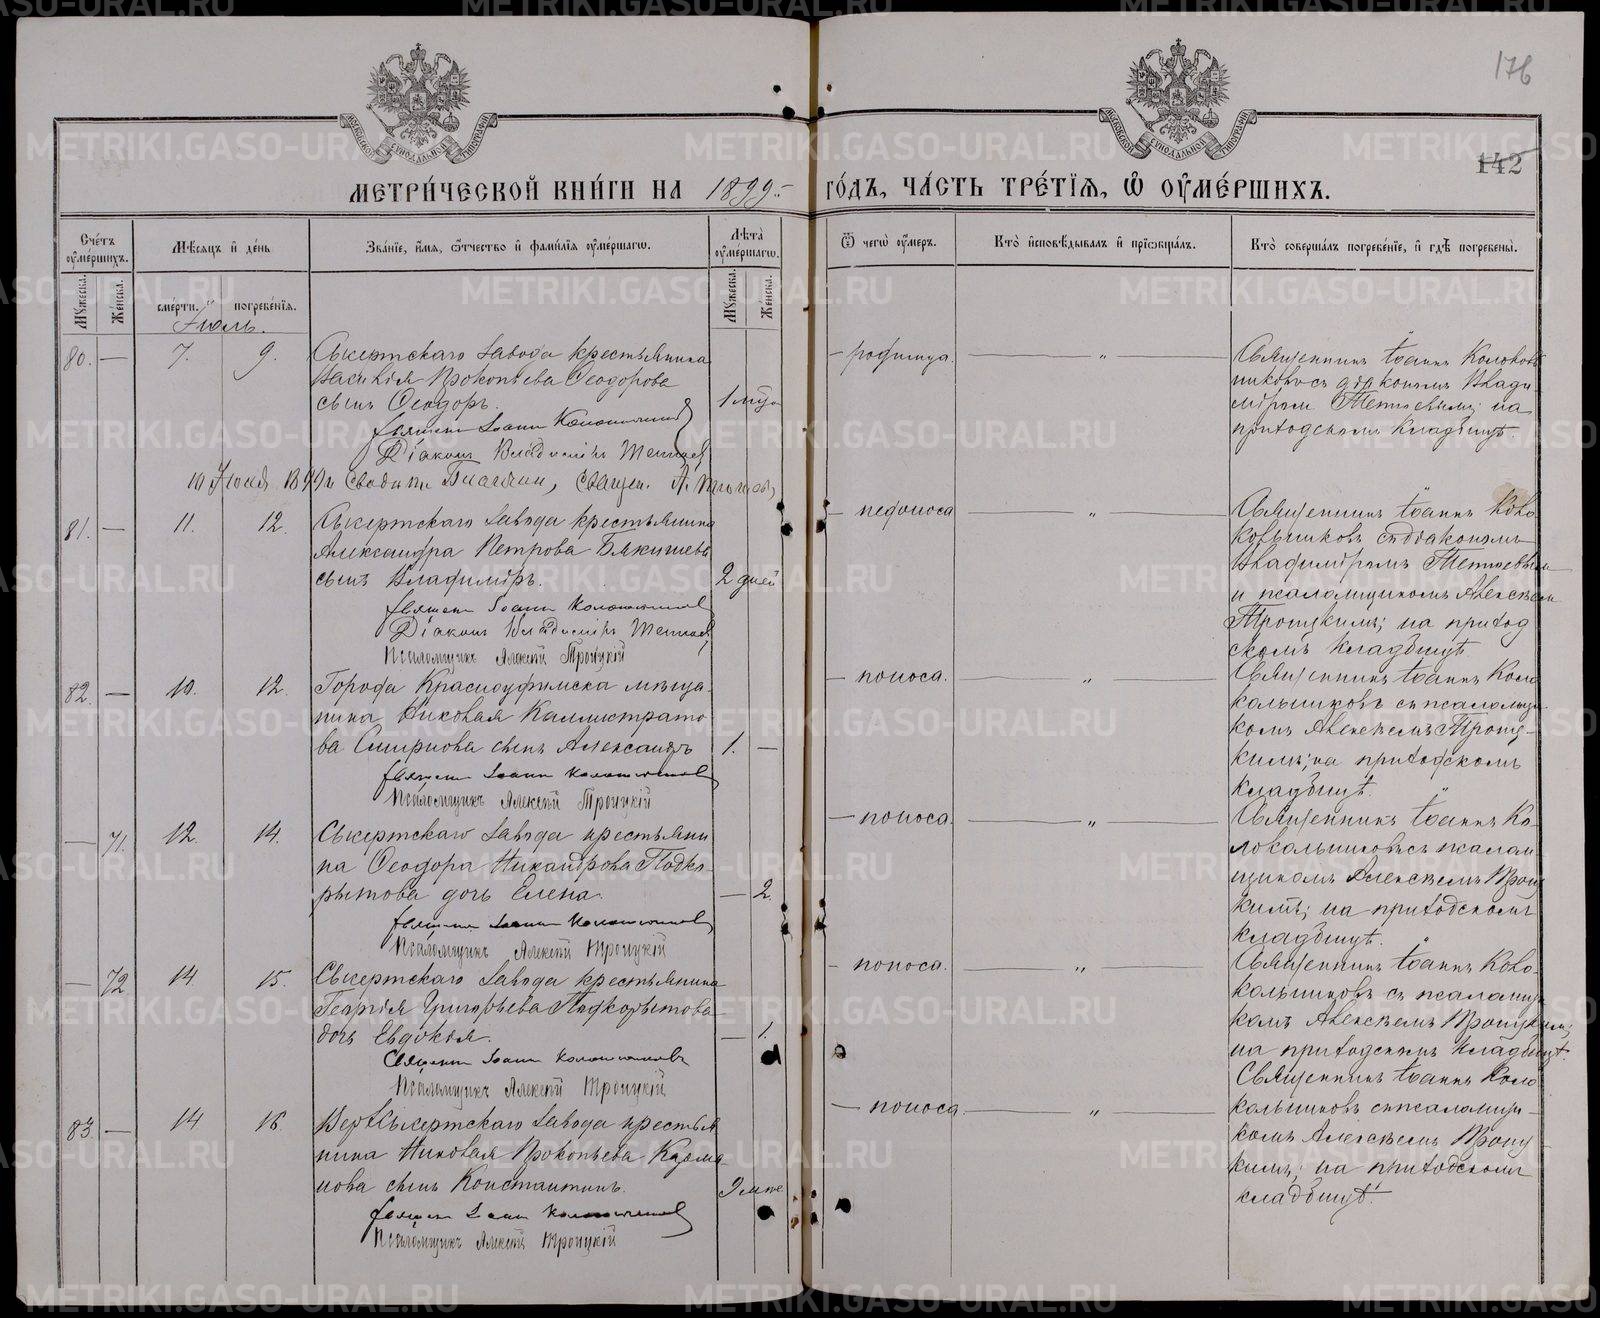 176
142
МЕТРИ́ЧЕСКОЙ КНИ́ГИ НА 1899. ГО́ДЪ, ЧА́СТЬ ТРЕ́ТІѦ, Ѿ ОУ҆МЕ́РШИХЪ.
Сче́тъ оу҆ме́ршихъ.
Мѣ́сяцъ и҆ де́нь
Зва́ніе, и҆́мя, ѻ҆́тчество и҆ фами́лія оу҆ме́ршагѡ.
Лѣ́та оу҆ме́ршагѡ.
Ѿ чегѡ̀ оу҆́меръ.
Кто̀ и҆сповѣ́дывалъ и҆ прїѡбща́лъ.
Кто̀ соверша́лъ погребе́ніе, и҆ гдѣ̀ погребены̀.
Мꙋ́жеска.
Же́нска.
сме́рти.
погребе́нія.
Мꙋ́жеска.
Же́нска.
Іюль.
80. — 7. 9. Сысертскаго завода крестьянина
Василія Прокопьева Ѳеодорова
сынъ Ѳеодоръ. 1 мѣс.
Священ. Іоаннъ Колокольниковъ
Діаконъ Владиміръ
родимца. — „ —
Священникъ Іоаннъ Колоколь
никовъ съ діакономъ Влади
міромъ на
приходскомъ кладбищѣ.
10 Іюля 1899 г. священ. А.
81. — 11. 12. Сысертскаго завода крестьянина
Александра Петрова Бякишевъ
сынъ Владиміръ. 2 дней
Священ. Іоаннъ Колокольниковъ
Діаконъ Владиміръ
Псаломщикъ Алексѣй Троицкій
недоноса — „ —
Священникъ Іоаннъ Коло
кольниковъ съ діакономъ
Владиміромъ
и псаломщикомъ Алексѣемъ
Троицкимъ; на приход
скомъ кладбищѣ.
82. — 10. 12. Города Красноуфимска мѣща-
нина Николая Каллистрато
ва Смирнова сынъ Александръ 1. —
Священ. Іоаннъ Колокольниковъ
Псаломщикъ Алексѣй Троицкій
поноса. — „ —
Священникъ Іоаннъ Коло
кольниковъ съ псаломщи
комъ Алексѣемъ Троиц-
кимъ; на приходскомъ
кладбищѣ.
— 71. 12. 14. Сысертскаго завода крестьяни
на Ѳеодора Никандрова Подко-
рытова дочь Елена. — 2.
Священ. Іоаннъ Колокольниковъ
Псаломщикъ Алексѣй Троицкій
поноса. — „ —
Священникъ Іоаннъ Ко-
локольниковъ съ псалом
щикомъ Алексѣемъ Троиц
кимъ; на приходскомъ
кладбищѣ.
— 72 14. 15. Сысертскаго завода крестьянина
Георгія Григорьева Подкорытова
дочь Евдокія. — 1.
Священ. Іоаннъ Колокольниковъ
Псаломщикъ Алексѣй Троицкій
поноса. — „ —
Священникъ Іоаннъ Коло-
кольниковъ съ псаломщи
комъ Алексѣемъ Троицкимъ;
на приходскомъ кладбищѣ.
83. — 14 16. Верхсысертскаго завода крестья
нина Николая Прокопьева Казма
нова сынъ Константинъ. 9 мѣс.
Священ. Іоаннъ Колокольниковъ
Псаломщикъ Алексѣй Троицкій
поноса. — „ —
Священникъ Іоаннъ Коло
кольниковъ съ псаломщи-
комъ Алексѣемъ Троиц
кимъ; на приходскомъ
кладбищѣ.
METRIKI.GASO-URAL.RU